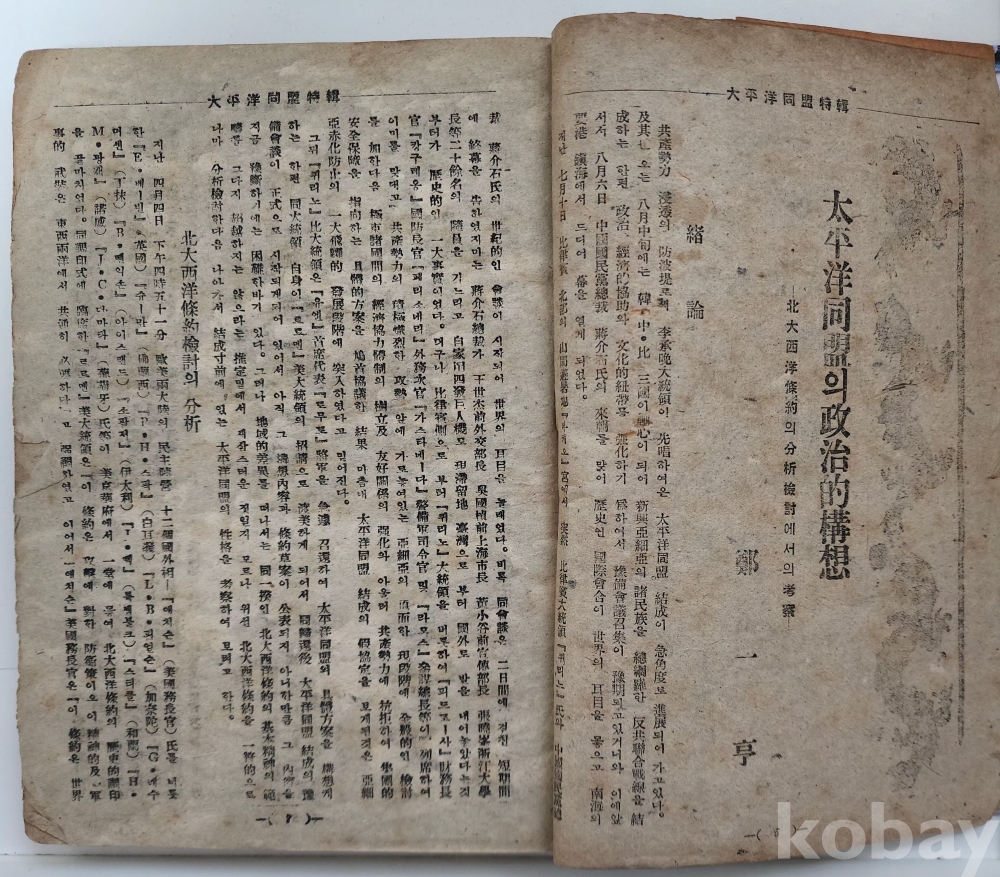 大平洋同盟特輯
太平洋同盟의政治的構想
—北大西洋條約의分析檢討에서의考察—
鄭一亨
緖論
共產勢力 浸透의 防波堤로써 李承晩大統領이 先唱하여온 太平洋同盟 結成이 急角度로 進展되어 가고있다.
及其 오는 八月中旬에는 韓·中·比 三國이 中心이 되어 新興亞細亞의 諸民族을 總網羅한 反共聯合戰線을 結
成하는 한편 政治、經濟的協助와 文化的紐帶를 强化하기 爲하여서 豫備會議召集이 豫期되고있거니와 이에앞
서서 八月六日 中國國民黨總裁 蔣介石氏의 來韓을 맞어 歷史的인 國際會合이 世界의 耳目을 끟으고 南海의
要港 鎭海에서 드디어 幕을 열게 되었다.
지난 七月十日 比律賓 北部의 山間 宮에서 比律賓大統領『퀴리노』氏와
—( )—
kobay
大平洋同盟特輯
裁 蔣介石氏의 世紀的인 會議이 시작되어 世界의 耳目을 놀래였다. 비록 同會議은 二日間에 걸친 短期間
에 終幕을 告하였지마는 蔣介石總裁가 王世杰前外交部長 吳國楨前上海市長 董小谷前官傳部長 張曉峯浙江大學
長等二十餘名의 隨員을 거느리고 自家用四發巨人機로 現滯留地 臺灣으로 부터 國外로 발을 내어놓았다는것
부터가 歷史的인 一大事實이었다. 더구나 比律賓側으로 부터는『퀴리노』大統領을 머루하여『피드로·사』財務長
官『캉구레옹』國防長官『페리·소네리』外務次官『가스타네다』警備軍司令官 및『라모스』參謀總長等이 列席하여
이마를 맞대고 共產勢力의 積極熾烈한 攻勢 앞에 가로놓여있는 亞細亞의 當面한 現段階에 全般的인 檢討
를 加하다음 極東諸國間의 經濟協力體制의 樹立及 友好關係의 强化와 아울러 共產勢力에 抗拒하여 集團的
安全保障을 指向하는 具體的方案을 鳩首協議한 結果 마츰내 太平洋同盟 結成의 假協定을 보게된것은 亞細
亞赤化防止의 一大飛躍的 發展段階에 突入하였다고 믿어진다.
그뒤『퀴리노』比大統領은『유엔』首席代表『로무로』將軍을 急遽 召還하여 太平洋同盟의 具體方案을 構想케
하는 한편 同大統領 自身이『트루맨』美大統領의 招請으로 渡美하게 되어서 歸還後 太平洋同盟 結成의 豫
備會議이 正式으로 시작되게되어 있어서 아직 그 構想內容과 條約草案이 公表되지 아니하만큼 그 內容을
지금 豫斷하기에는 困難한바가 있다. 그러나 地域的差異를 떠나서는 同一揆인 北大西洋條約의 基本精神의 範
疇를 그다지 超越하지는 않으라는 推定밑에서 대상스러운 짓일지 모르나 위선 北大西洋條約을 一瞥的으로
나마 分析檢討한다음 나아가서 結成寸前에 있는 太平洋同盟의 性格을 考察하여 보려고 하다.
北大西洋條約檢討의 分析
지난 四月四日 下午四時五十一分 歐美兩大陸의 民主陣營 十二個國外相『애치슨』(美國務長官)氏를 비롯
한『E·베-빈』(英國)『슈-만』(佛蘭西)『P·H·스팍』(白耳義)『L·B·피얼슨』(加奈陀)『G·라수
머센』(丁抹)『B·베익손』(아이스랜드)『스팔저』(伊太利)『T·벡』(룩셈불크)『스티클』(和蘭)『H·
M·랑게』(諾威)『J·C·다마타』(葡萄牙)氏等이 美京華府에서 一堂에 뫃여 北大西洋條約의 歷史的調印
을 끝마치었다. 同調印式에 臨席한『트루맨』美大統領은『이 條約은 攻擊에 對한 防衛策이오 이 精神的及 軍
事的 武裝은 東西兩洋에서 共通히 必要하다』고 强調하였고 이어서『애치슨』美國務長官은『이 條約은 世界
—( 7 )—